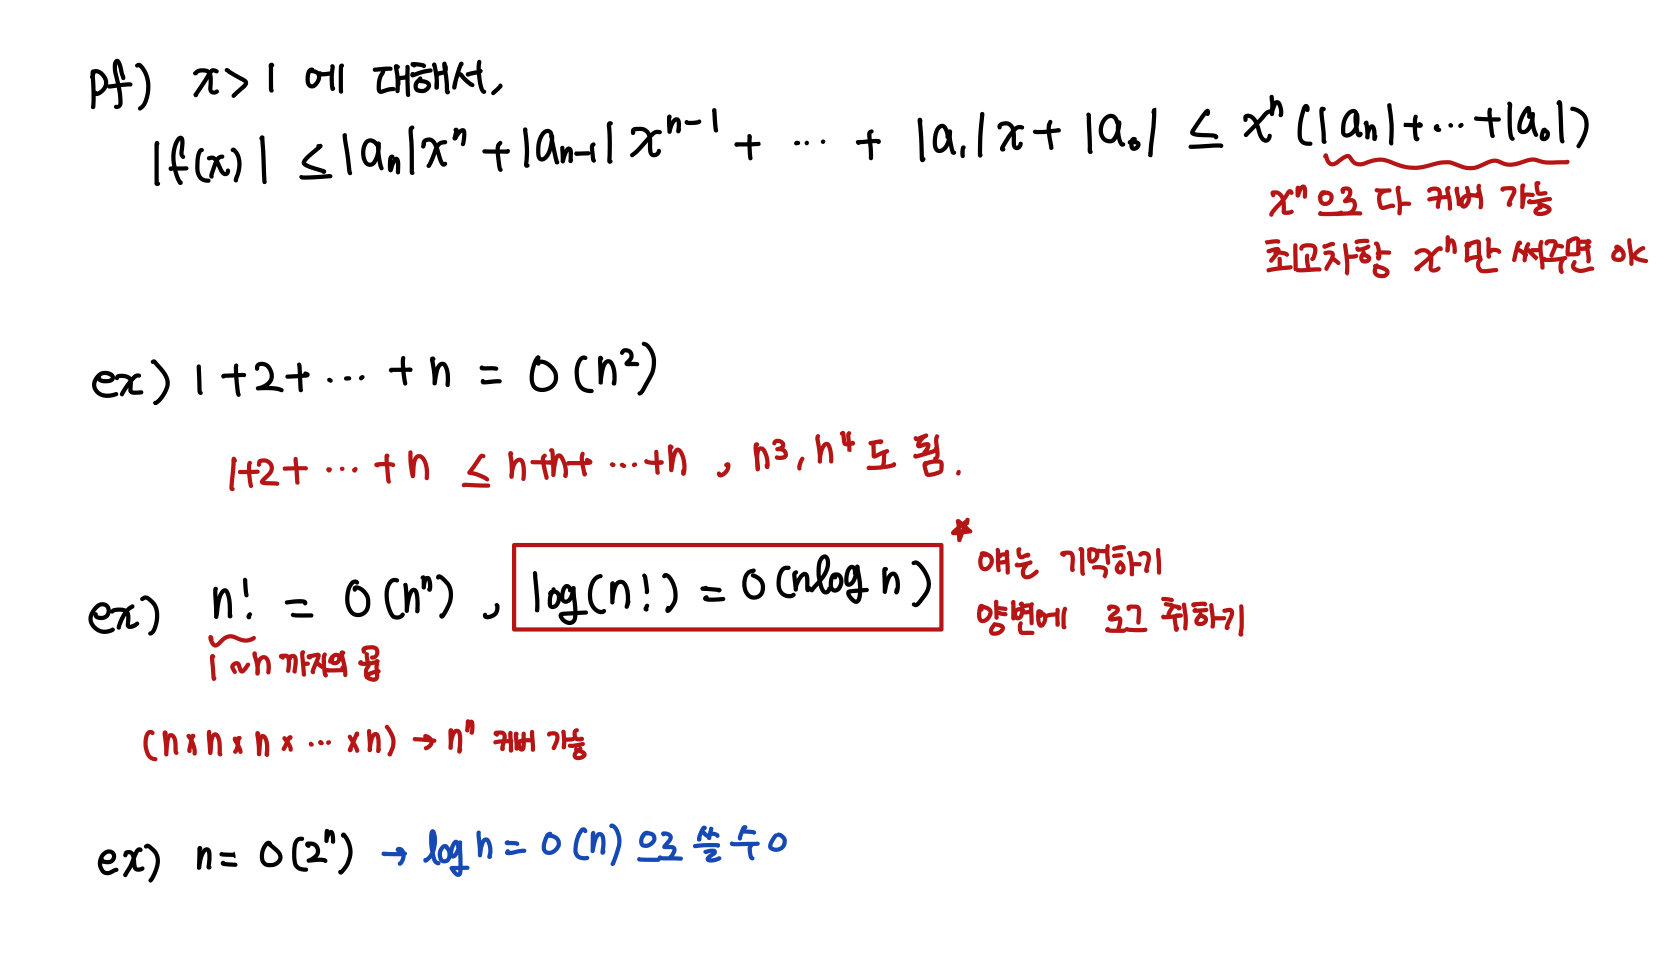 pf) x>1 에 대해서,
|f(x)| ≤ |aₙ|xⁿ + |aₙ₋₁|xⁿ⁻¹ + ··· + |a₁|x + |a₀| ≤ xⁿ(|aₙ|+···+|a₀|)
xⁿ으로 다 커버 가능
최고차항 xⁿ만 써주면 ok
ex) 1+2+ ··· +n = O(n²)
1+2+ ··· +n ≤ n+n+ ···+n , n³, n⁴도 됨.
ex) n! = O(nⁿ), log(n!) = O(nlog n) ★
얘는 기억하기
양변에 로그 취하기
1~n까지의 곱
(n×n×n× ··· ×n) → nⁿ 커버 가능
ex) n= O(2ⁿ) → log n = O(n)으로 쓸 수 O